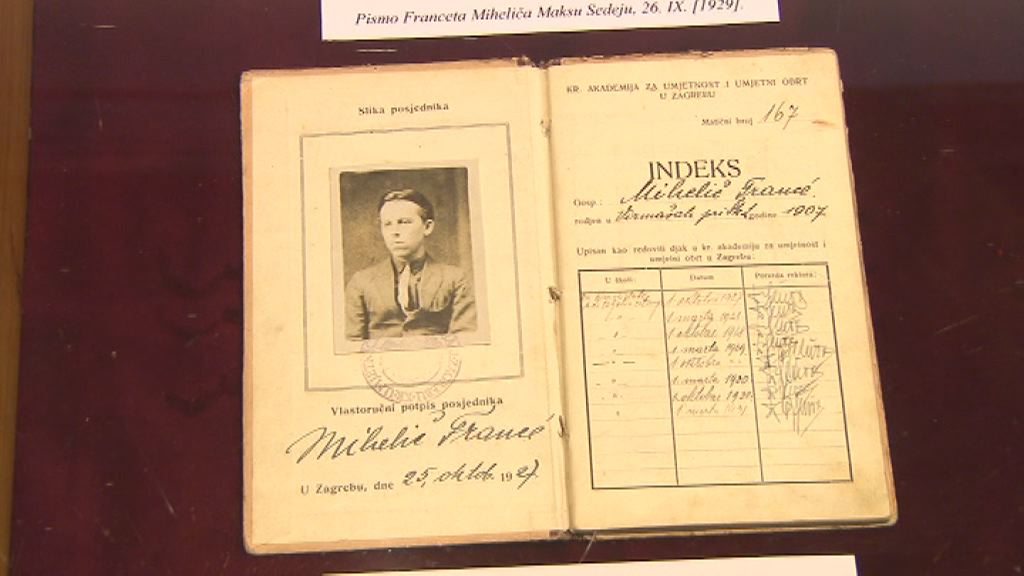 Pismo Franceta Miheliča Maksu Sedeju, 26. IX. [1929].
Slika posjednika
Vlastoručni potpis posjednika
Mihelić Francé
U Zagrebu, dne 25, oktob. 1927
KR. AKADEMIJA ZA UMJETNOST I UMJETNI OBRT
U ZAGREBU
Matični broj 167
INDEKS
Gosp.: Mihelić Francé
rodjen u godine 1907.
Upisan kao redoviti djak u kr. akademiju za umjetnost i
umjetni obrt u Zagrebu:
U školi: Datum Potvrda rektora:
1 oktobra 1927
1 marta 1928
1 oktobra 1928
1. marta 1929
1 oktobra
1. marta 1930
1 oktobra 1930
1 marta 1931